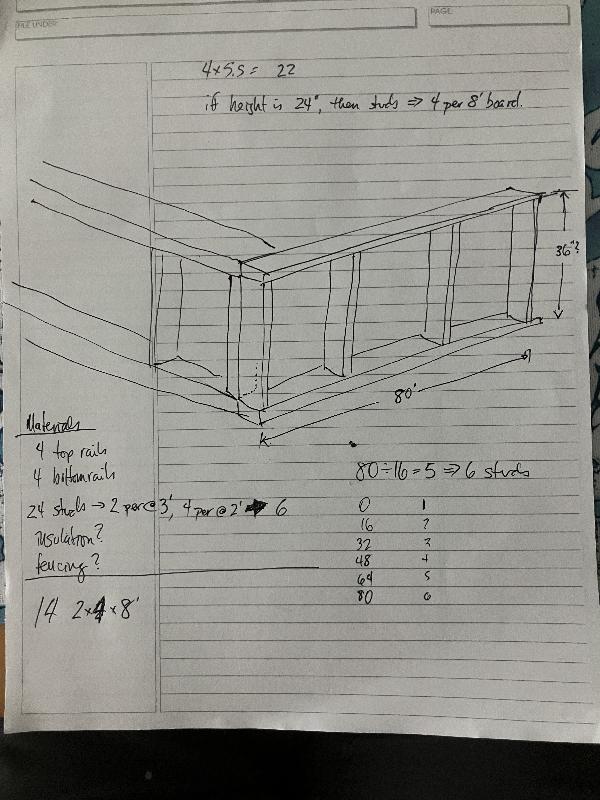 FILE UNDER
PAGE
4 x 5.5 = 22
if height is 24", then studs ⇒ 4 per 8' board.
36"?
80'
Materials
4 top rails
4 bottom rails
24 studs → 2 per @ 3', 4 per @ 2' → 6
insulation?
fencing?
14 2x4 x 8'
80 ÷ 16 = 5 ⇒ 6 studs
0 1
16 2
32 3
48 4
64 5
80 6